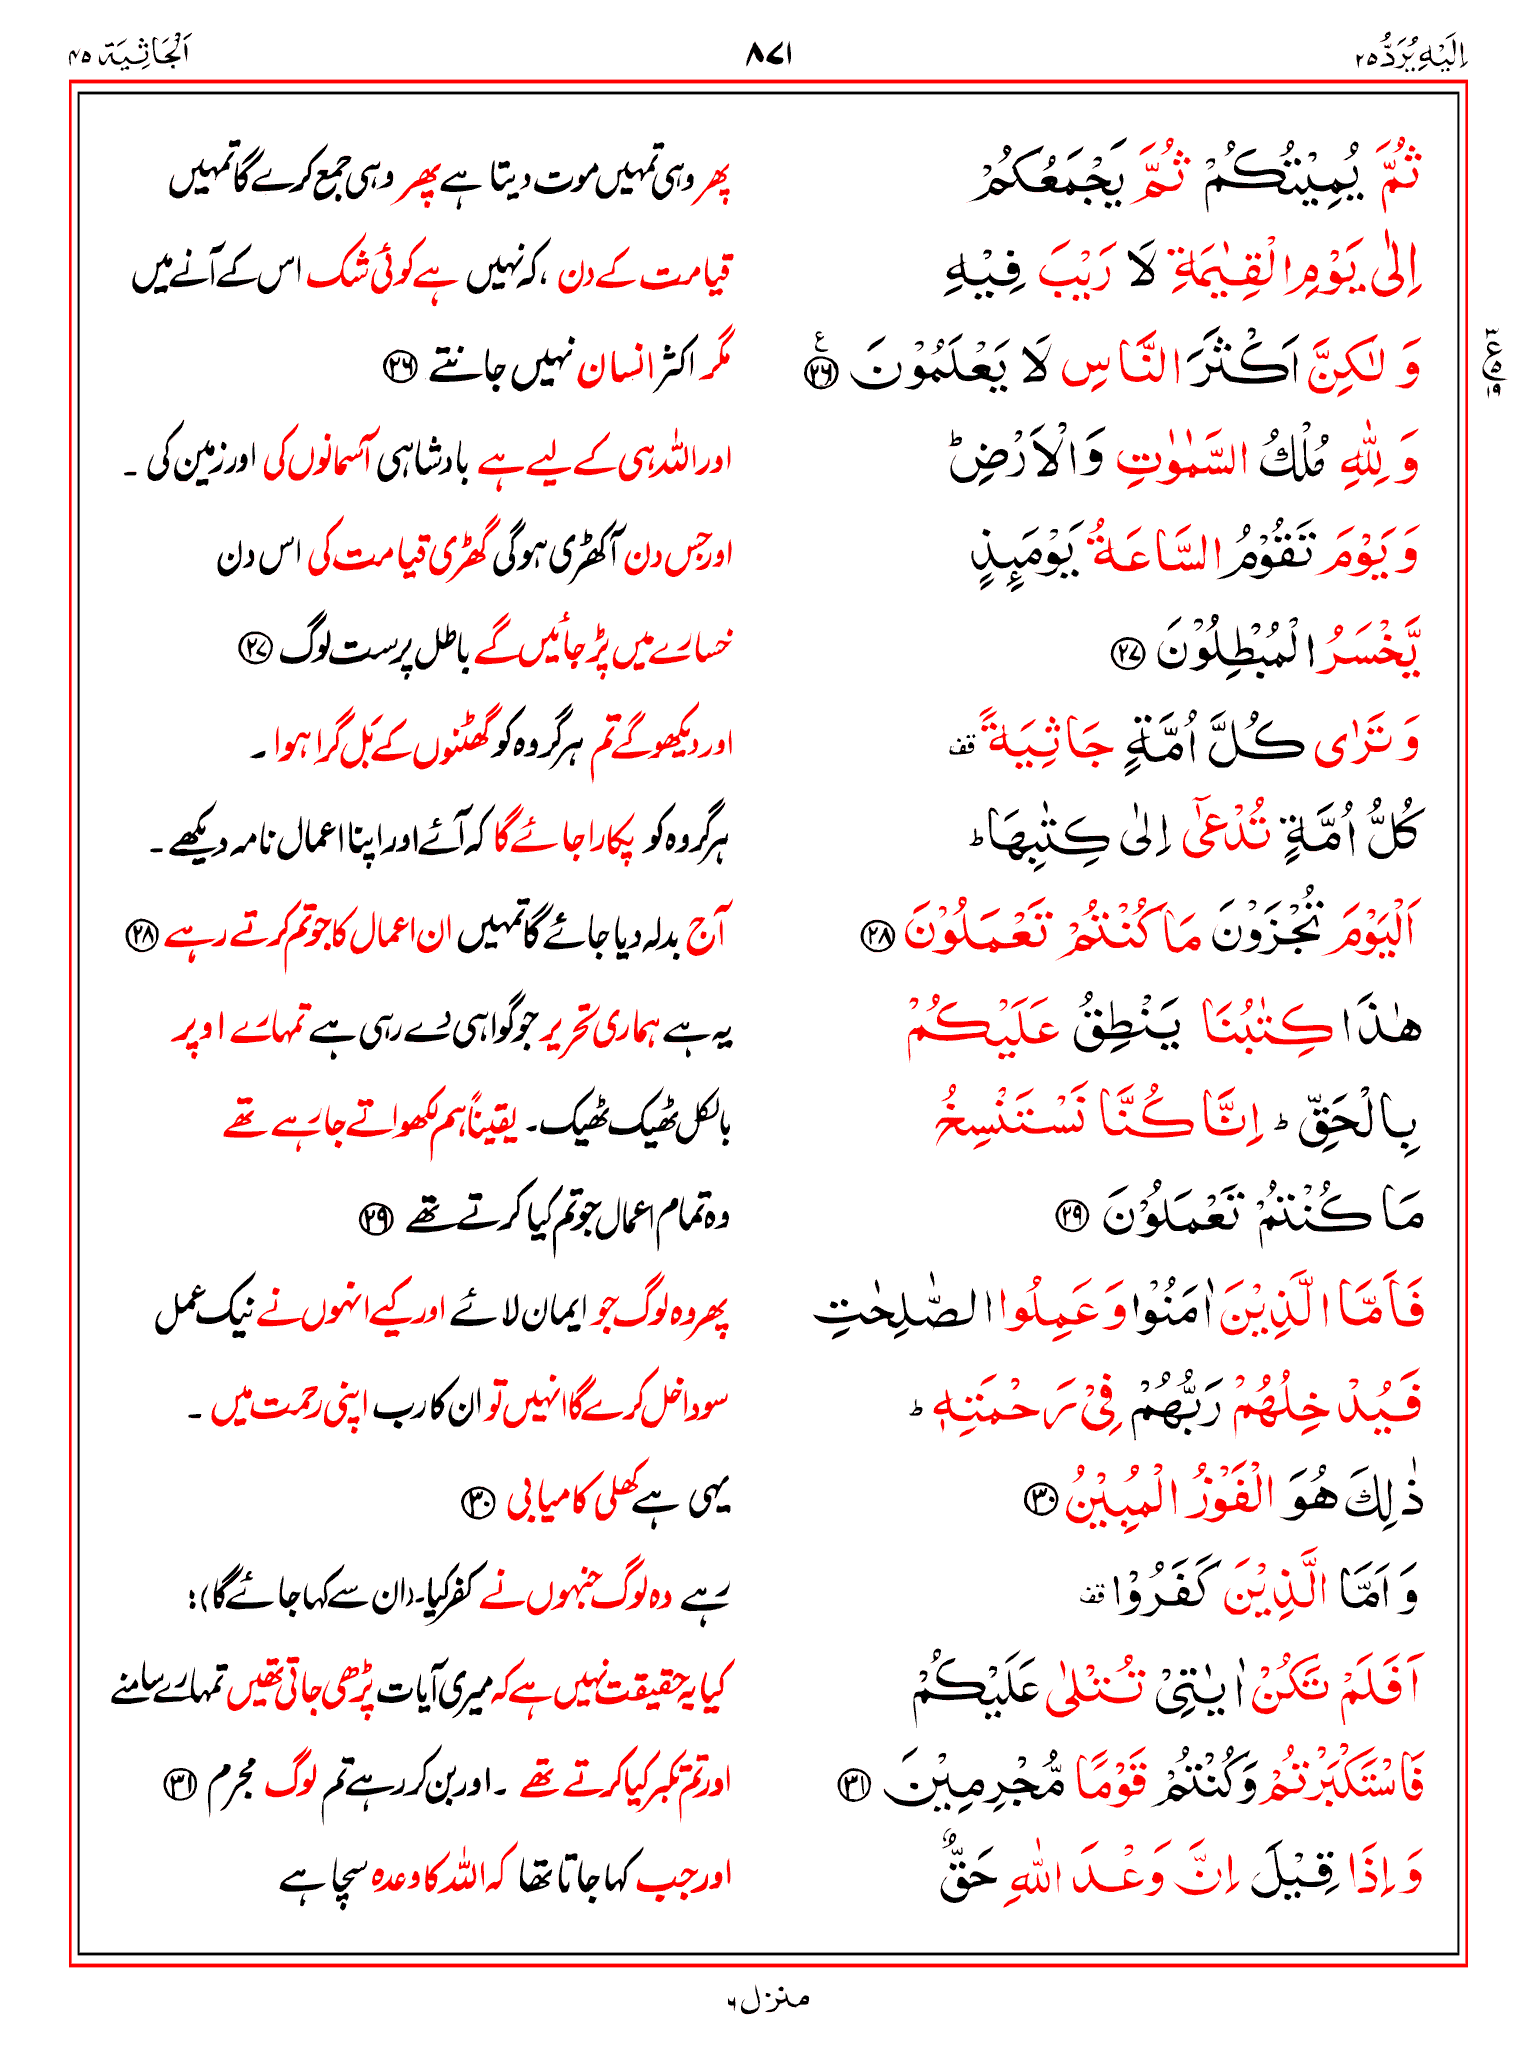 اِلَيْهِ يُرَدُّ ۲۵
۸۷۱
اَلْجَاثِيَة ۴۵
ثُمَّ يُمِيْتُكُمْ ثُمَّ يَجْمَعُكُمْ پھر وہی تمہیں موت دیتا ہے پھر وہی جمع کرے گا تمہیں
اِلٰى يَوْمِ الْقِيٰمَةِ لَا رَيْبَ فِيْهِ قیامت کے دن ، کہ نہیں ہے کوئی شک اس کے آنے میں
وَ لٰكِنَّ اَكْثَرَ النَّاسِ لَا يَعْلَمُوْنَ ۲۶ ع مگر اکثر انسان نہیں جانتے ۲۶
وَ لِلّٰهِ مُلْكُ السَّمٰوٰتِ وَالْاَرْضِ ؕ اور اللہ ہی کے لیے ہے بادشاہی آسمانوں کی اور زمین کی ۔
وَ يَوْمَ تَقُوْمُ السَّاعَةُ يَوْمَىِٕذٍ اور جس دن آکھڑی ہوگی گھڑی قیامت کی اس دن
يَّخْسَرُ الْمُبْطِلُوْنَ ۲۷ خسارے میں پڑ جائیں گے باطل پرست لوگ ۲۷
وَ تَرٰى كُلَّ اُمَّةٍ جَاثِيَةً قف اور دیکھو گے تم ہر گروہ کو گھٹنوں کے بَل گرا ہوا ۔
كُلُّ اُمَّةٍ تُدْعٰٓى اِلٰى كِتٰبِهَا ؕ ہر گروہ کو پکارا جائے گا کہ آئے اور اپنا اعمال نامہ دیکھے ۔
اَلْيَوْمَ تُجْزَوْنَ مَا كُنْتُمْ تَعْمَلُوْنَ ۲۸ آج بدلہ دیا جائے گا تمہیں ان اعمال کا جو تم کرتے رہے ۲۸
هٰذَا كِتٰبُنَا يَنْطِقُ عَلَيْكُمْ یہ ہے ہماری تحریر جو گواہی دے رہی ہے تمہارے اوپر
بِالْحَقِّ ؕ اِنَّا كُنَّا نَسْتَنْسِخُ بالکل ٹھیک ٹھیک ۔ یقیناً ہم لکھواتے جا رہے تھے
مَا كُنْتُمْ تَعْمَلُوْنَ ۲۹ وہ تمام اعمال جو تم کیا کرتے تھے ۲۹
فَاَمَّا الَّذِيْنَ اٰمَنُوْا وَ عَمِلُوا الصّٰلِحٰتِ پھر وہ لوگ جو ایمان لائے اور کیے انہوں نے نیک عمل
فَيُدْخِلُهُمْ رَبُّهُمْ فِيْ رَحْمَتِهٖ ؕ سو داخل کرے گا انہیں تو ان کا رب اپنی رحمت میں ۔
ذٰلِكَ هُوَ الْفَوْزُ الْمُبِيْنُ ۳۰ یہی ہے کھلی کامیابی ۳۰
وَ اَمَّا الَّذِيْنَ كَفَرُوْا قف رہے وہ لوگ جنہوں نے کفر کیا۔ (ان سے کہا جائے گا):
اَفَلَمْ تَكُنْ اٰيٰتِيْ تُتْلٰى عَلَيْكُمْ کیا یہ حقیقت نہیں ہے کہ میری آیات پڑھی جاتی تھیں تمہارے سامنے
فَاسْتَكْبَرْتُمْ وَ كُنْتُمْ قَوْمًا مُّجْرِمِيْنَ ۳۱ اور تم تکبر کیا کرتے تھے ۔ اور بن کر رہے تم لوگ مجرم ۳۱
وَ اِذَا قِيْلَ اِنَّ وَعْدَ اللّٰهِ حَقٌّ اور جب کہا جاتا تھا کہ اللہ کا وعدہ سچا ہے
منزل ۶